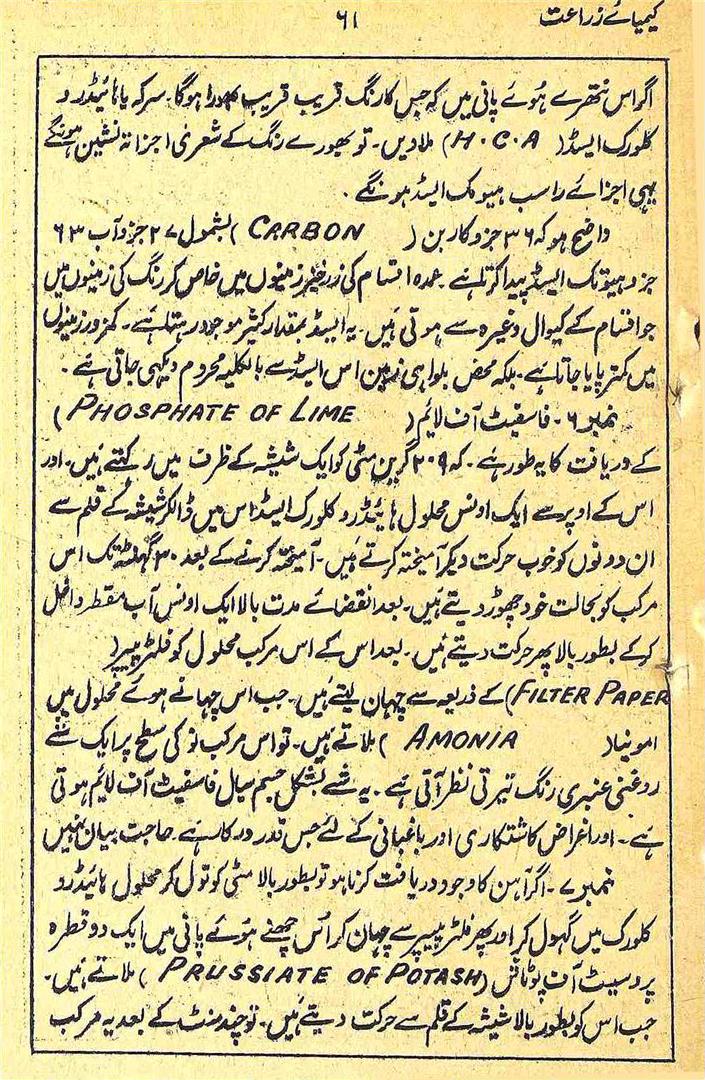 کیمیائے زراعت
۶۱
اگر اس نتھرے ہُوئے پانی میں کہ جس کا رنگ قریب قریب بھورا ہوگا۔ سرکہ یا ہائیڈرو
کلورک ایسڈ (H.C.A) ملا دیں۔ تو بھورے رنگ کے شعری اجزا تہ نشین ہونگے
یہی اجزائے راسب ہیومک ایسڈ ہونگے۔
واضح ہو کہ ۳۶ جزو کاربن (CARBON) بشمول ۲۷ جزو آب ۶۳
جزو ہیومک ایسڈ پیدا کرتا ہے۔ عمدہ اقسام کی زرخیز زمینوں میں خاص کر رنگ کی زمینوں میں
جو اقسام کے کیوال وغیرہ سے ہوتی ہیں۔ یہ ایسڈ بمقدار کثیر موجود رہتا ہے۔ کمزور زمینوں
میں کمتر پایا جاتا ہے۔ بلکہ محض بلواہی زمین اس ایسڈ سے بالکلیہ محروم دیکھی جاتی ہے۔
نمبر ۶۔ فاسفیٹ آف لائیم (PHOSPHATE OF LIME)
کے دریافت کا یہ طور ہے۔ کہ ۲۰۹ گرین مٹی کو ایک شیشہ کے ظرف میں رکھتے ہیں۔ اور
اس کے اوپر سے ایک اونس محلول ہائیڈرو کلورک ایسڈ اس میں ڈالکر شیشہ کے قلم سے
ان دونوں کو خوب حرکت دیکر آمیختہ کرتے ہیں۔ آمیختہ کرنے کے بعد ۳۰ گھنٹہ تک اس
مرکب کو بحالت خود چھوڑ دیتے ہیں۔ بعد انقضائے مدت بالا ایک اونس آب مقطر داخل
کرکے بطور بالا پھر حرکت دیتے ہیں۔ بعد اس کے اس مرکب محلول کو فلٹر پیپر (
FILTER PAPER) کے ذریعہ سے چہان لیتے ہیں۔ جب اس چہانے ہوئے محلول میں
امونیا (AMONIA) ملاتے ہیں۔ تو اس مرکب نو کی سطح پر ایک شے
روغنی عنبری رنگ تیرتی نظر آتی ہے۔ یہ شے بشکل جسم سیال فاسفیٹ آف لائیم ہوتی
ہے۔ اور اغراض کاشتکاری اور باغبانی کے لئے جس قدر درکار ہے۔ حاجت بیان نہیں
نمبر ۷۔ اگر آہن کا وجود دریافت کرنا ہو تو بطور بالا مٹی کو تول کر محلول ہائیڈرو
کلورک میں گہول کر اور پھر فلٹر پیپر سے چہان کر اُس چھنے ہُوئے پانی میں ایک دو قطرہ
پروسیٹ آف پوٹاش (PRUSSIATE OF POTASH) ملاتے ہیں۔
جب اس کو بطور بالا شیشہ کے قلم سے حرکت دیتے ہیں۔ تو چند منٹ کے بعد یہ مرکب